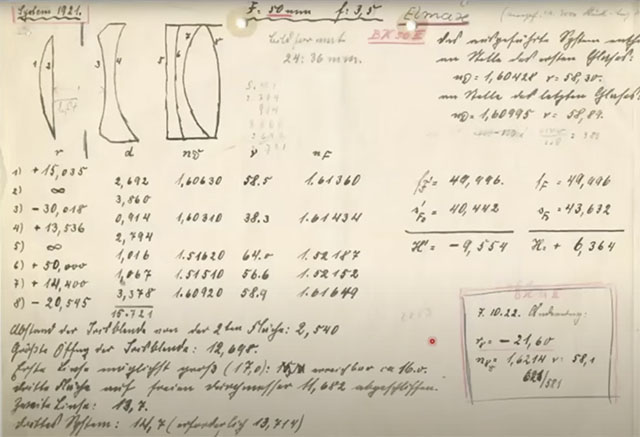 System 1921.
F: 50 mm f: 3,5
Elmax
BK 50 I
Bildformat
24:36 mm.
das ausgeführte System enth.
an Stelle des ersten Glases:
nD = 1,60428 v = 58,30.
an Stelle des letzten Glases:
nD = 1,60995 v = 58,89.
1 2 3 4 5 6 7 8
r d nD v nF
1) + 15,035
2,692 1,60630 58.5 1.61360
2) ∞
3,860
3) - 30,018
0,914 1,60310 38.3 1.61434
4) + 13,536
2,794
5) ∞
1,016 1.51620 64.0 1.52187
6) + 50,000
1,067 1.51510 56.6 1.52152
7) + 14,400
3,378 1.60920 58.9 1.61649
8) - 20,545
15.721
49,996. 49,996
40,442 43,632
H' = - 9,554 H = + 6,364
Abstand der Irisblende von der 2ten Fläche: 2,540
Größte Öffng der Irisblende: 12,698.
Erste Linse möglichst groß (17,0): erreichbar ca 16.0.
dritte Fläche auf freien Durchmesser 11,682 abgeschliffen.
Zweite Linse: 13,7.
drittes System: 14,7 (erforderlich 13,714)
7. 10. 22. Änderung:
= - 21,60
1,6214 v: 58,1
/581